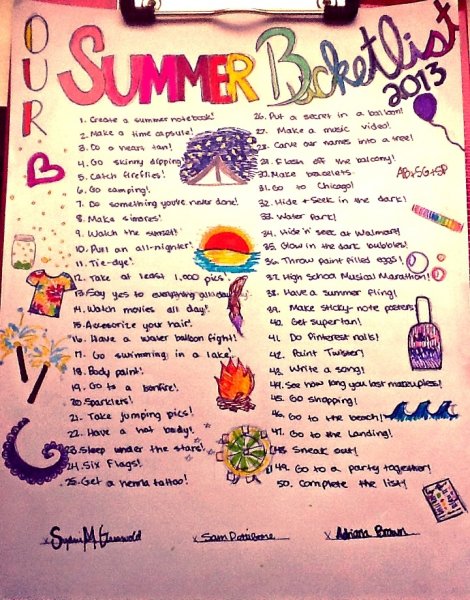 OUR
SUMMER Bucketlist
2013
1. Create a summer notebook!
2. Make a time capsule!
3. Do a heart tan!
4. Go skinny dipping
5. Catch fireflies!
6. Go camping!
7. Do something you've never done!
8. Make s'mores!
9. Watch the sunset!
10. Pull an all-nighter!
11. Tie-dye!
12. Take at least 1,000 pics!
13. Say yes to everything all day!
14. Watch movies all day!
15. Accesorize your hair!
16. Have a water balloon fight!
17. Go swimming in a lake!
18. Body paint!
19. Go to a bonfire!
20. Sparklers!
21. Take jumping pics!
22. Have a hot body!
23. Sleep under the stars!
24. Six Flags!
25. Get a henna tattoo!
26. Put a secret in a balloon!
27. Make a music video!
28. Carve our names into a tree!
29. Flash off the balcony!
30. Make bracelets
31. Go to Chicago!
32. Hide + Seek in the dark!
33. Water Park!
34. Hide 'n' seek at Walmart!
35. Glow in the dark bubbles!
36. Throw paint filled eggs!
37. High School Musical Marathon!
38. Have a summer fling!
39. Make sticky-note posters
40. Get supertan!
41. Do Pinterest nails!
42. Paint Twister!
43. Write a song!
44. See how long you last makeupless!
45. Go shopping!
46. Go to the beach!
47. Go to the Landing!
48. Sneak out!
49. Go to a party together!
50. Complete the list!
AB+SG+SP
x Sam Pattibone
x Adriana Brown